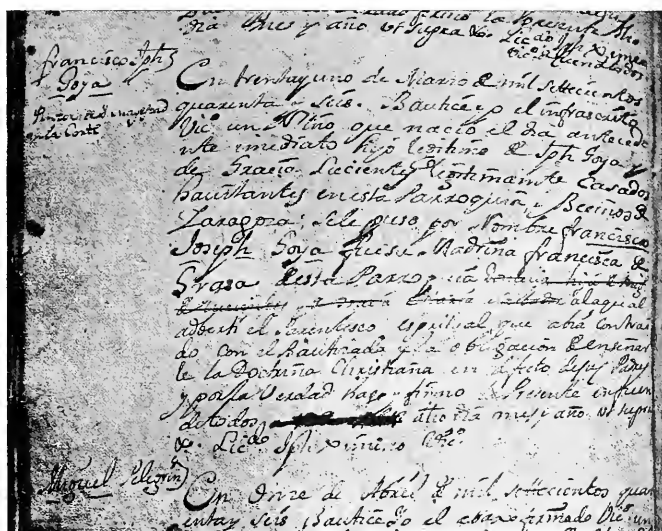 dia mes y año ut supra &.
francisco Jph
Goya
Pintor
en la Corte
En treinta y uno de Marzo de mil settecientos
quarenta y seis. Bauticé yo el infrascrito
Vic.º un Niño que nació el dia antecede
nte imediato hijo legitimo de Jph Goya y
de Gracia Lucientes legitimamte Casados
havitantes en esta Parroquia y Vecinos de
Zaragoza: se le puso por Nombre francisco
Joseph Goya fue su Madrina francisca de
Grasa desta Parroquia
a la qual
adverti el Parentesco espiritual que abia contrai
do con el Bautizado y la obligacion de enseñar
le la Doctrina Christiana en defecto de sus Padres
y por la verdad hago y firmo el presente en fuen
detodos dia mes y año ut supra
&. Licdo Jph Ximeno Vic.º
Miguel Pelegrin
En Onze de Abril de mil settecientos quar
enta y seis Bautice Yo el abaxo firmado Vic.º un